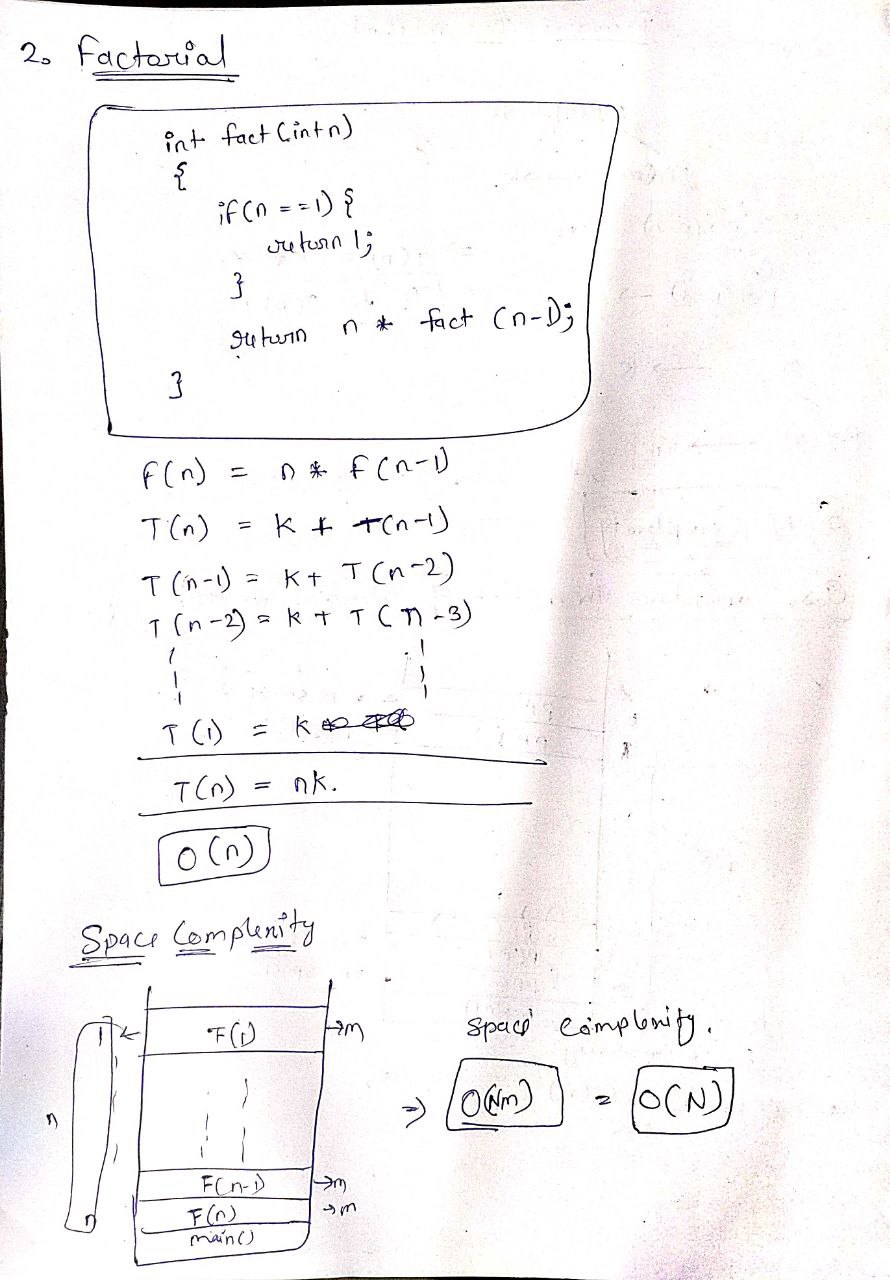 2. Factorial
int fact (int n)
{
if(n == 1) {
return 1;
}
return n * fact (n-1);
}
F(n) = n * f(n-1)
T(n) = K + T(n-1)
T(n-1) = K + T(n-2)
T(n-2) = K + T(n-3)
T(1) = K
T(n) = nk.
O(n)
Space Complenity
1 ← F(1) →m
space complenity.
n
⇒ O(Nm) = O(N)
F(n-1) →m
n F(n) →m
main()